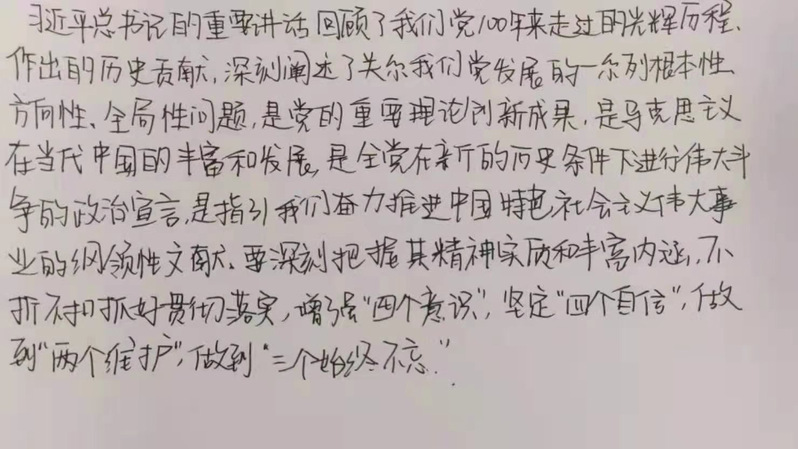 习近平总书记的重要讲话回顾了我们党100年来走过的光辉历程、
作出的历史贡献,深刻阐述了关尔我们党发展的一尔列根本性、
方向性、全局性问题,是党的重要理论创新成果,是马克思主义
在当代中国的丰富和发展,是全党在新的历史条件下进行伟大斗
争的政治宣言,是指引我们奋力推进中国特色社会主义伟大事
业的纲领性文献。要深刻把握其精神实质和丰富内涵,不
折不扣抓好贯彻落实,增强"四个意识",坚定"四个自信",做
到"两个维护",做到"三个始终不忘."